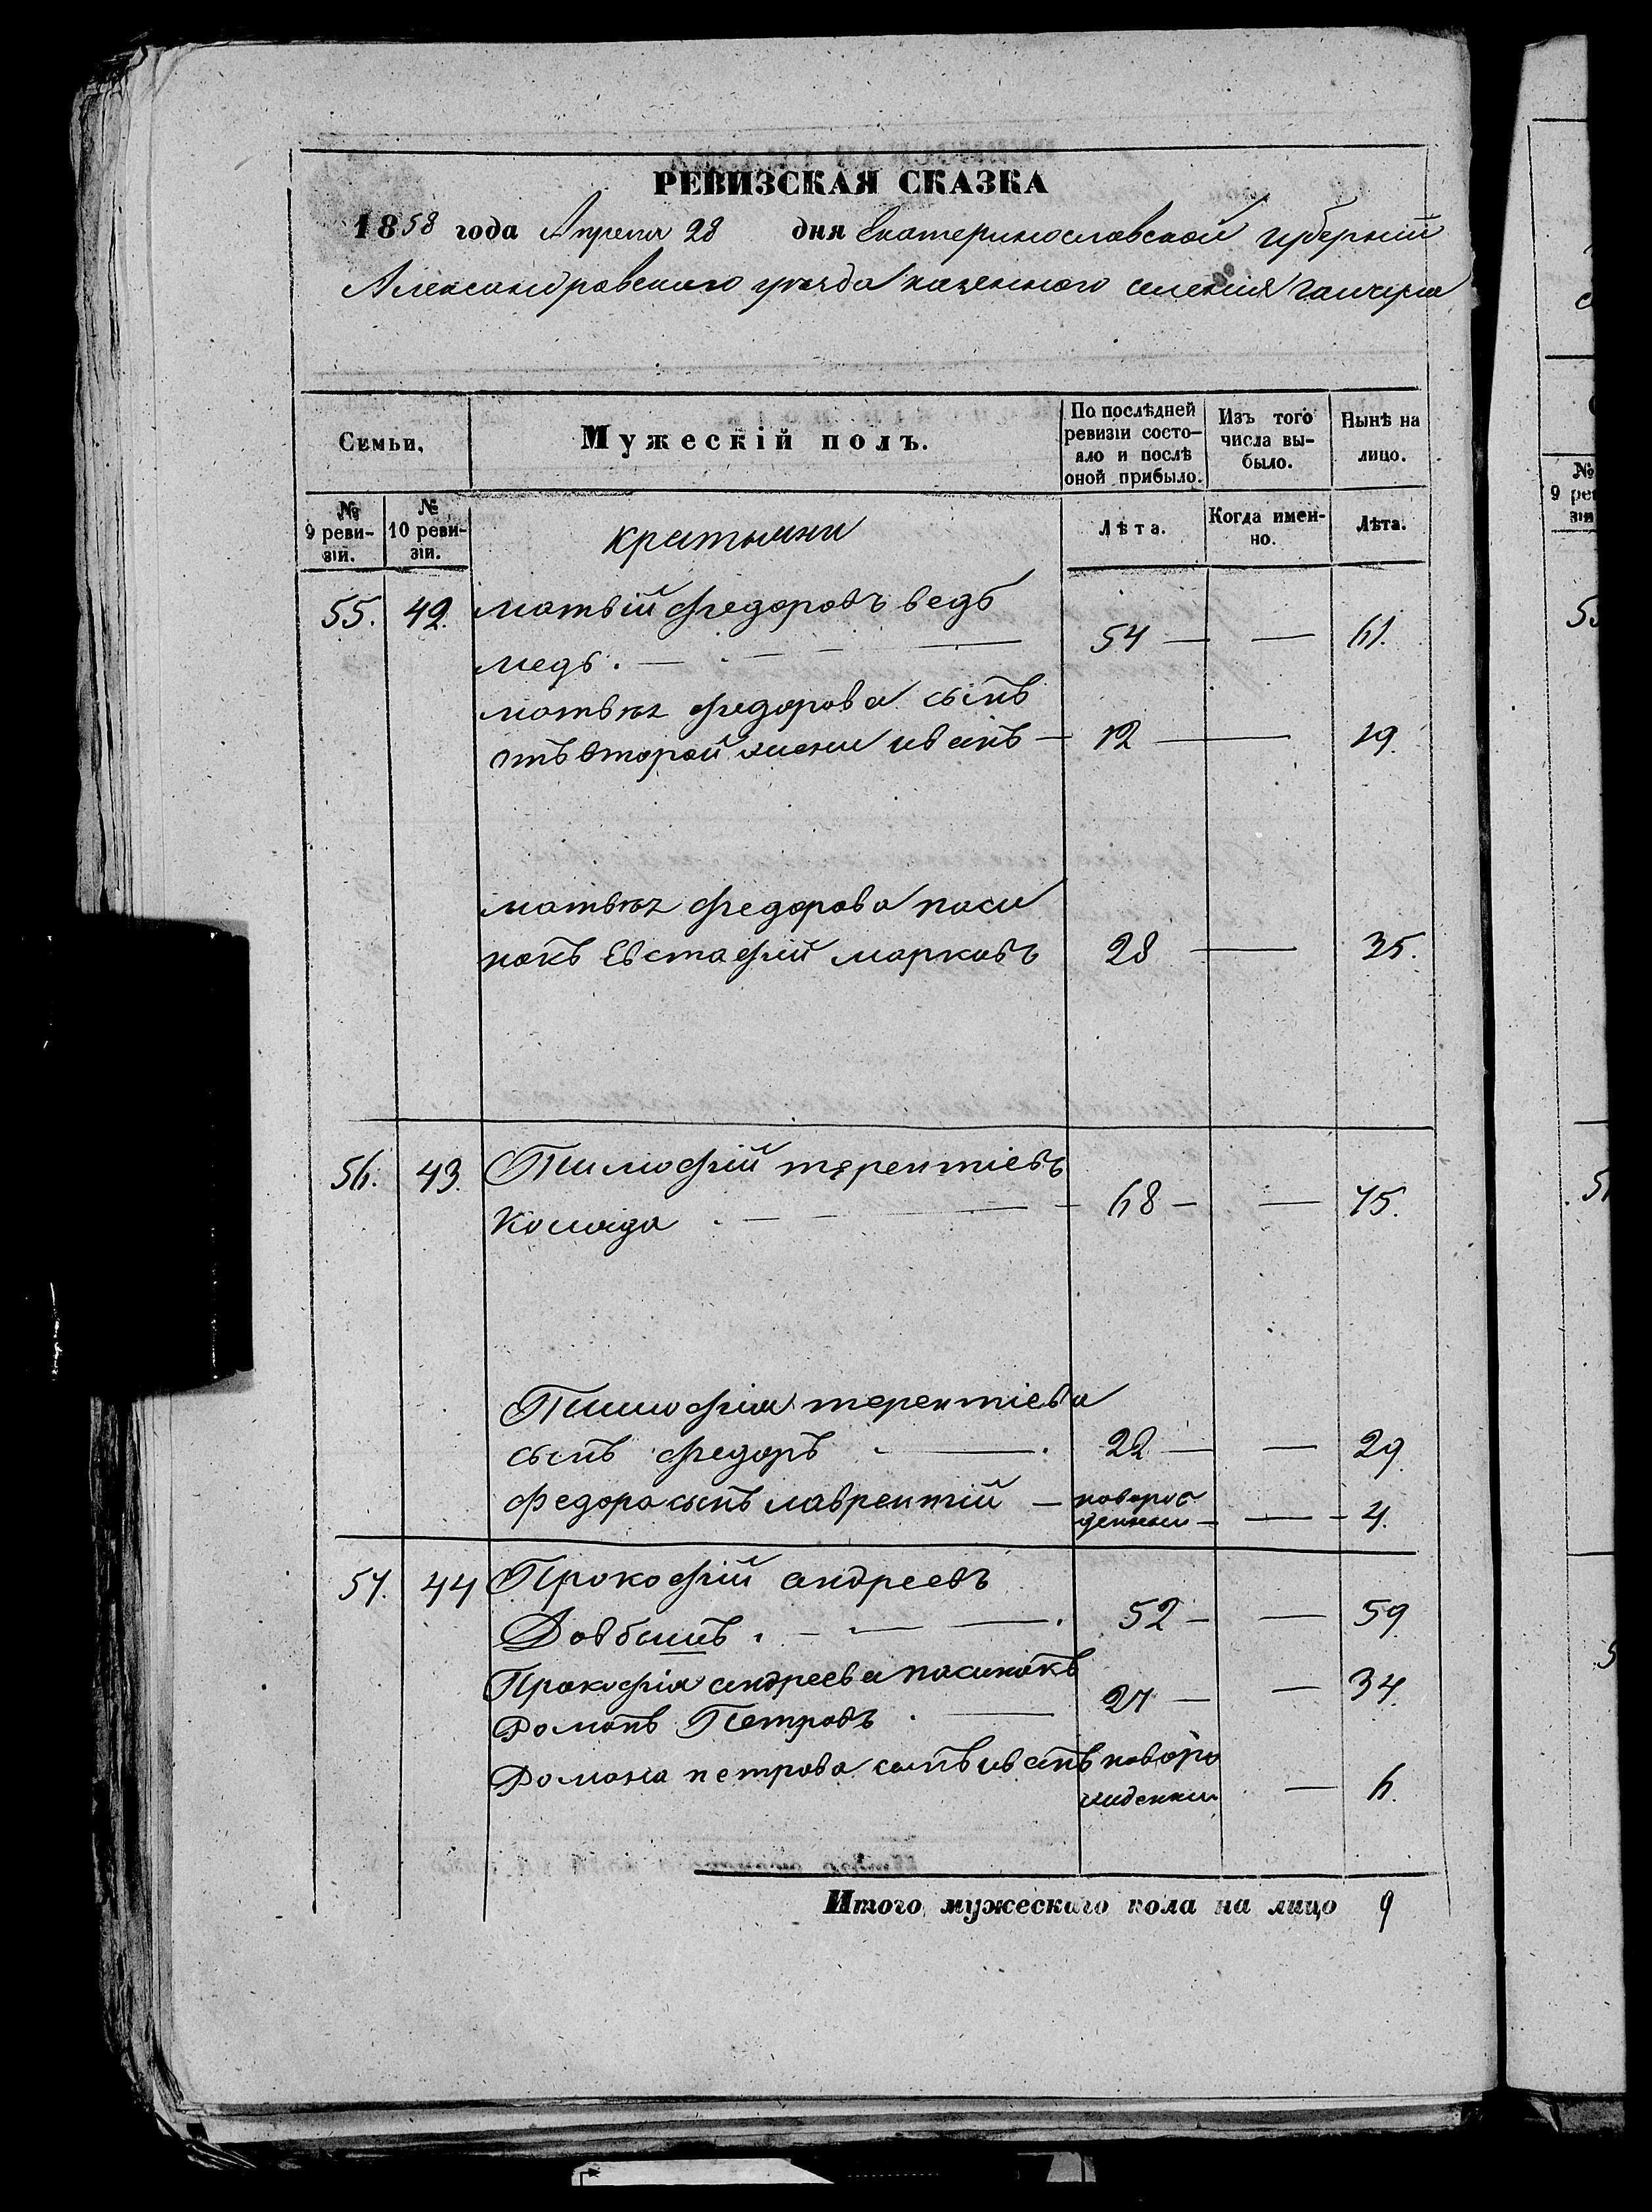 РЕВИЗСКАЯ СКАЗКА
1858 года Апреля 28 дня Екатеринославской губернии
Александровского уезда казенного селения Гайчула
Семьи.
Мужескій полъ.
По послѣдней ревизіи состо-яло и послѣ оной прибыло.
Изъ того числа вы-было.
Нынѣ на лицо.
№ 9 реви-зіи.
№ 10 реви-зіи.
Лѣта.
Когда имен-но.
Лѣта.
55. 42. матвій федоровъ ведь
медь. 54 — — 61.
матвѣя федорова сынъ
отъ второй жены иванъ — 12 — 19.
матвѣя федорова паси
нокъ Евстафій марковъ 28 — 35.
56. 43. Тимофій терентіевъ
Коляда 68 — — 75.
Тимофія терентіева
сынъ федоръ 22 — — 29.
Федора сынъ лаврентій — новорож
денный — — 4.
57. 44 Прокофій андреевъ
Довбышъ. 52 — — 59
Прокофія андреева пасинокъ
Романъ Петровъ 27 — — 34.
Романа петрова сынъ иванъ новоро
жденный — 6.
Итого мужескаго пола на лицо 9